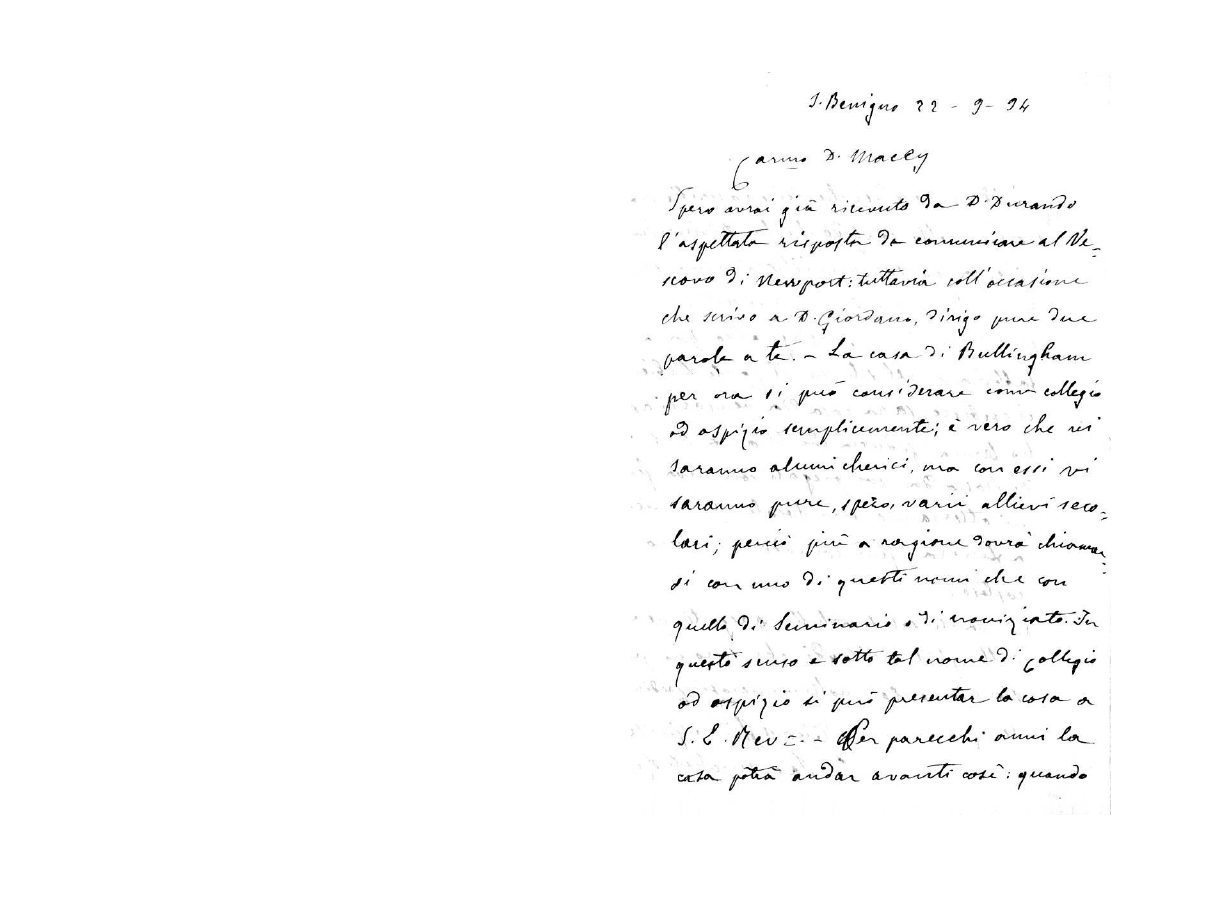 S. Benigno 22 - 9 - 94
Carmo D. Macey
Spero avrai già ricevuto da D. Durando
l'aspettata risposta da comunicare al Ve=
scovo di Newport: tuttavia coll'occasione
che scrivo a D. Giordano, dirigo pure due
parole a te. - La casa di Bullingham
per ora si può considerare come collegio
od ospizio semplicemente; è vero che vi
saranno alcuni chierici, ma con essi vi
saranno pure, spero, varii allievi seco=
lari; perciò più a ragione dovrà chiamar=
si con uno di questi nomi che con
quello di Seminario o di noviziato. In
questo senso e sotto tal nome di collegio
od ospizio si può presentar la cosa a
S. E. Rev= - Per parecchi anni la
casa potrà andar avanti così: quando